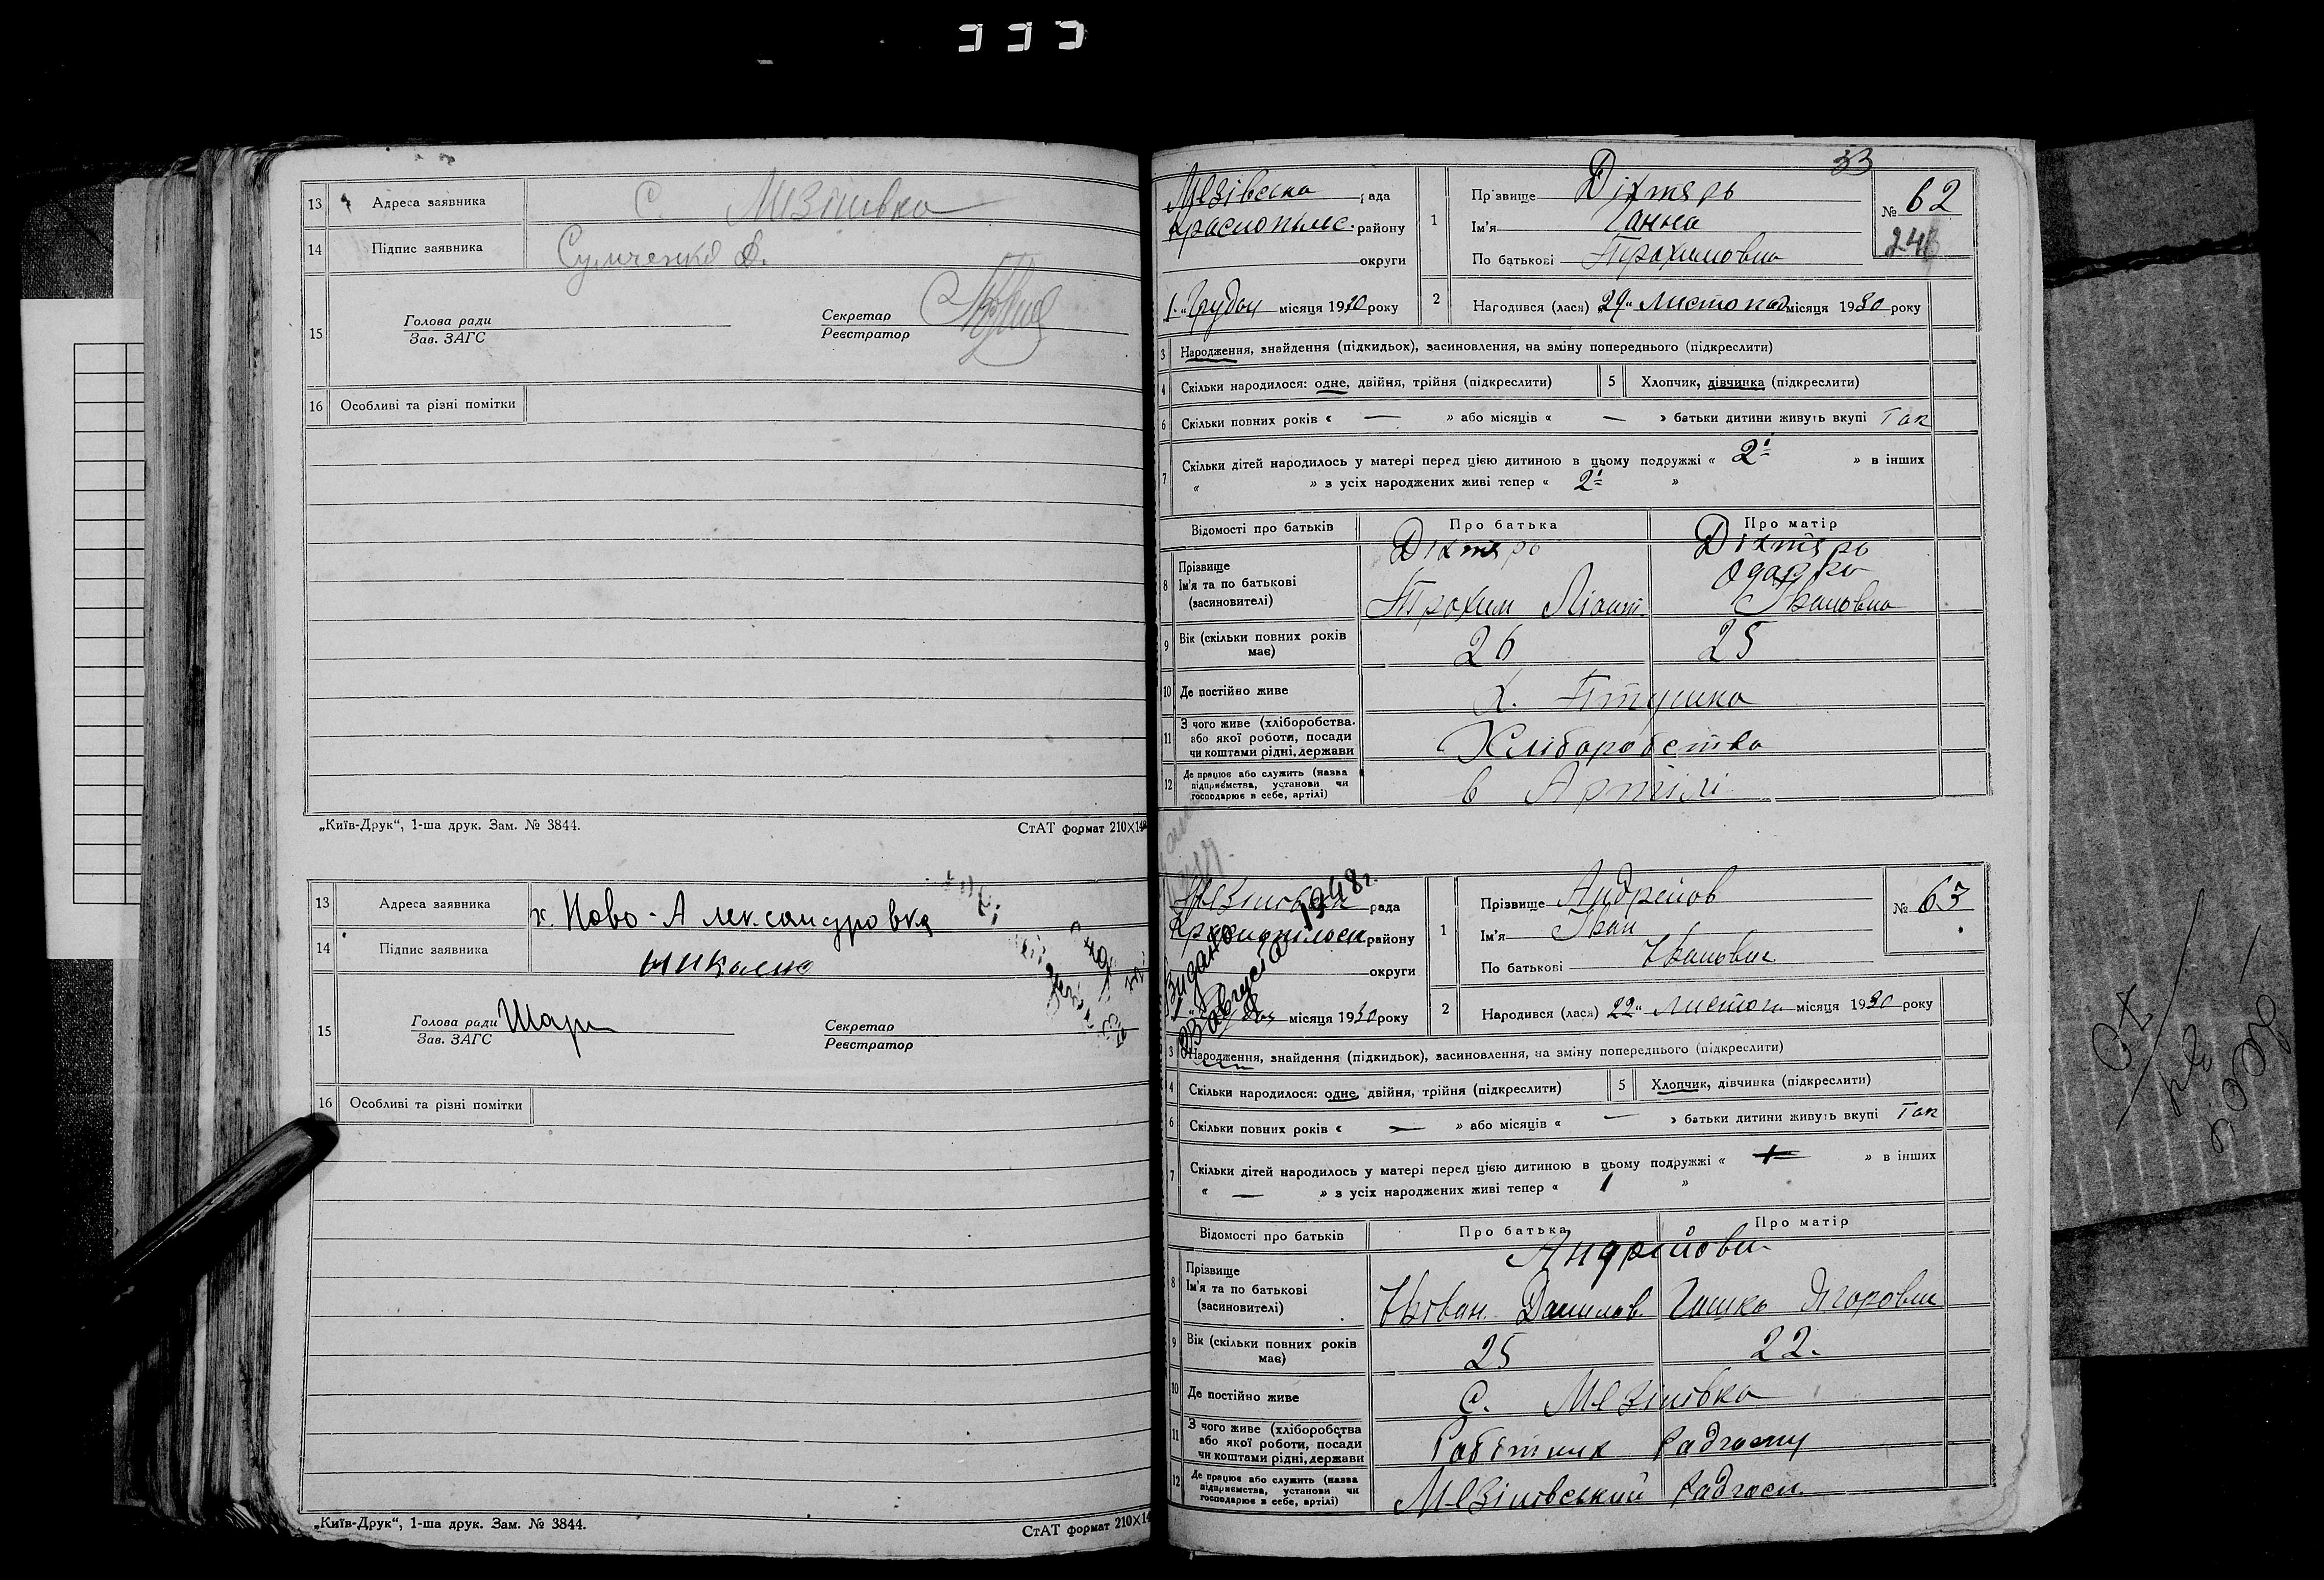 13 Адреса заявника С. Мезінівка
14 Підпис заявника Сумченко Д.
15 Голова ради
Зав. ЗАГС
Секретар
Реєстратор
16 Особливі та різні помітки
„Київ-Друк“, 1-ша друк. Зам. № 3844. СтАТ формат 210×148
13 Адреса заявника х. Ново-Александровка
14 Підпис заявника
15 Голова ради
Зав. ЗАГС
Секретар
Реєстратор
16 Особливі та різні помітки
„Київ-Друк“, 1-ша друк. Зам. № 3844. СтАТ формат 210×14
33
рада
Краснопільс. району
округи
1. Грудня місяця 1930 року
1 Прізвище Діхтярь
Ім'я Ганна
По батькові Трохимовна
№ 62
246
2 Народився (лася) „29“ Листопад місяця 1930 року
3 Народження, знайдення (підкидьок), засиновлення, на зміну попереднього (підкреслити)
4 Скільки народилося: одне, двійня, трійня (підкреслити) 5 Хлопчик, дівчинка (підкреслити)
6 Скільки повних років « — » або місяців « — » батьки дитини живуть вкупі Так
7 Скільки дітей народилось у матері перед цією дитиною в цьому подружжі « 2 » в інших
« » з усіх народжених живі тепер « 2 »
Відомості про батьків Про батька Про матір
8 Прізвище
Ім'я та по батькові
(засиновителі)
Діхтярь
Трохим
Діхтярь
Одарка
Івановна
9 Вік (скільки повних років має) 26 25
10 Де постійно живе х.
11 З чого живе (хліборобства.
або якої роботи, посади
чи коштами рідні, держави Хліборобство
12 Де працює або служить (назва
підприємства, установи чи
господарює в себе, артілі) в Артілі
рада
району
округи
місяця 1930 року
Видано
23 августа 1948 г.
1 Прізвище Андрейов
Ім'я Іван
По батькові Іванович
№ 63
2 Народився (лася) 22“ Листоп. місяця 1930 року
3 Народження, знайдення (підкидьок), засиновлення, на зміну попереднього (підкреслити)
4 Скільки народилося: одне, двійня, трійня (підкреслити) 5 Хлопчик, дівчинка (підкреслити)
6 Скільки повних років « — » або місяців « — » батьки дитини живуть вкупі Так
7 Скільки дітей народилось у матері перед цією дитиною в цьому подружжі « » в інших
« — » з усіх народжених живі тепер « 1 »
Відомості про батьків Про батька Про матір
8 Прізвище
Ім'я та по батькові
(засиновителі)
Андрейови
Іван. Данилов. Гашка Ягоровна
9 Вік (скільки повних років має) 25 22.
10 Де постійно живе С. Мезінівка
11 З чого живе (хліборобства
або якої роботи, посади
чи коштами рідні, держави Робітник Радгоспу
12 Де працює або служить (назва
підприємства, установи чи
господарює в себе, артілі) Мезінівський Радгосп.